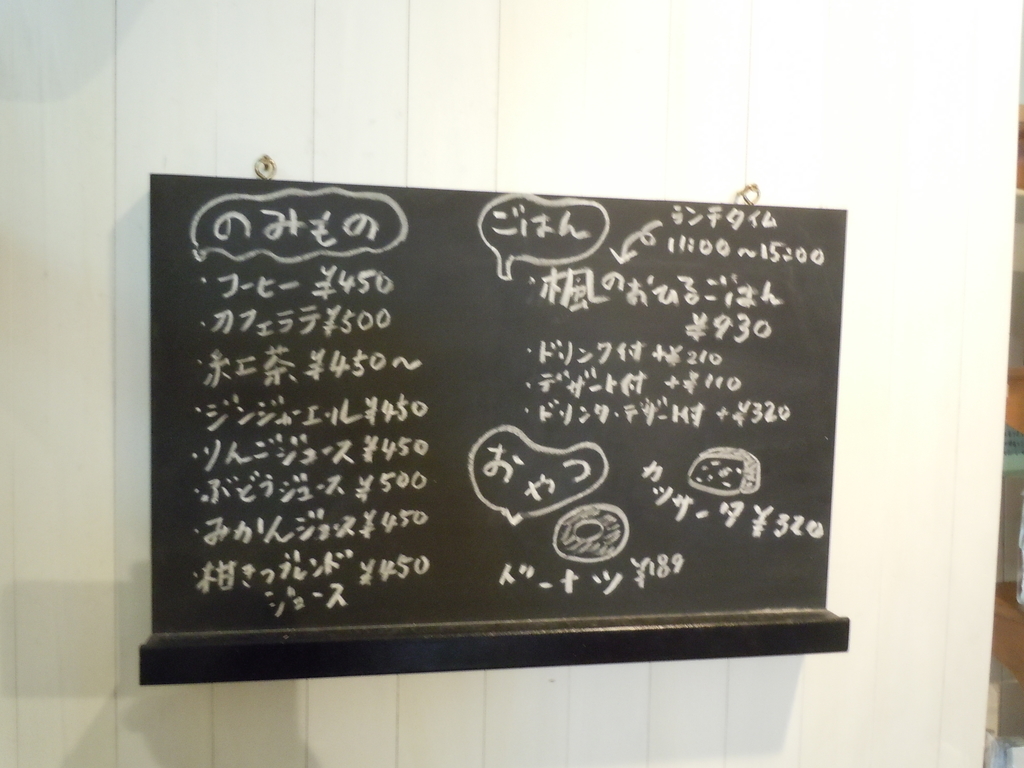 のみもの
・コーヒー ¥450
・カフェラテ ¥500
・紅茶 ¥450〜
・ジンジャーエール ¥450
・りんごジュース ¥450
・ぶどうジュース ¥500
・みかんジュース ¥450
・柑きつブレンド ¥450
ジュース
ごはん
ランチタイム
11:00〜15:00
・楓のおひるごはん
¥930
・ドリンク付 +¥210
・デザート付 +¥110
・ドリンク・デザート付 +¥320
おやつ
カッサータ ¥320
ドーナツ ¥189